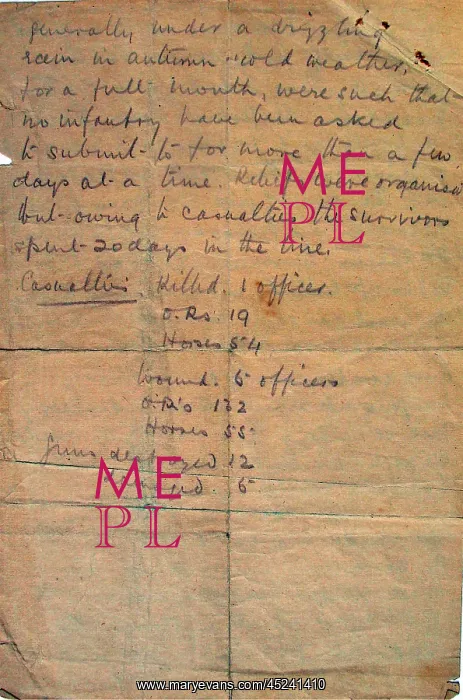 generally, under a drizzling
rain in autumn cold weather,
for a full month, were such that
no infantry have been asked
to submit to for more than a few
days at a time. Reliefs were organised
but owing to casualties the survivors
spent 20 days in the line.
Casualties Killed. 1 officer.
O.Rs. 19
Horses 54
Wound. 5 officers
O.R's 132
Horses 55
Guns destroyed 12
5
ME
PL
ME
PL
www.maryevans.com/45241410